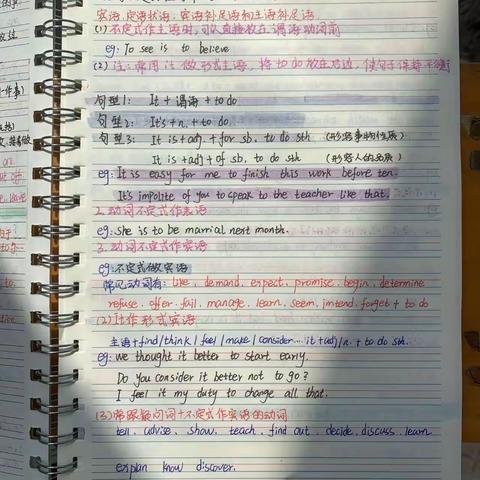 宾语、定语、状语、宾语补足语和主语补足语。
(1) 不定式作主语时,可以直接放在谓语动词前
eg: To see is to believe
(2) 注:常用 it 做形式主语,将 to do 放在后边,使句子保持平衡
句型1: It + 谓语 + to do
句型2: It's + n. + to do.
句型3: It is + adj. + for sb. to do sth (形容事物的性质)
It is + adj + of sb. to do sth (形容人的品质)
eg: It is easy for me to finish this work before ten.
It's impolite of you to speak to the teacher like that.
2. 动词不定式作表语
eg: she is to be marrial next month.
3. 动词不定式作宾语
eg: 不定式做宾语
常记动词有: like, demand, expect, promise, begin, determine
refuse, offer, fail, manage, learn, seem, intend, forget + to do
(2) It 作形式宾语
主语 + find / think / feel / make / consider... it + adj / n. + to do sth.
eg: we thought it better to start early.
Do you consider it better not to go?
I feel it my duty to change all that.
(3) 常跟疑问词 + 不定式作宾语的动词
tell, advise, show, teach, find out, decide, discuss, learn
explan know discover.